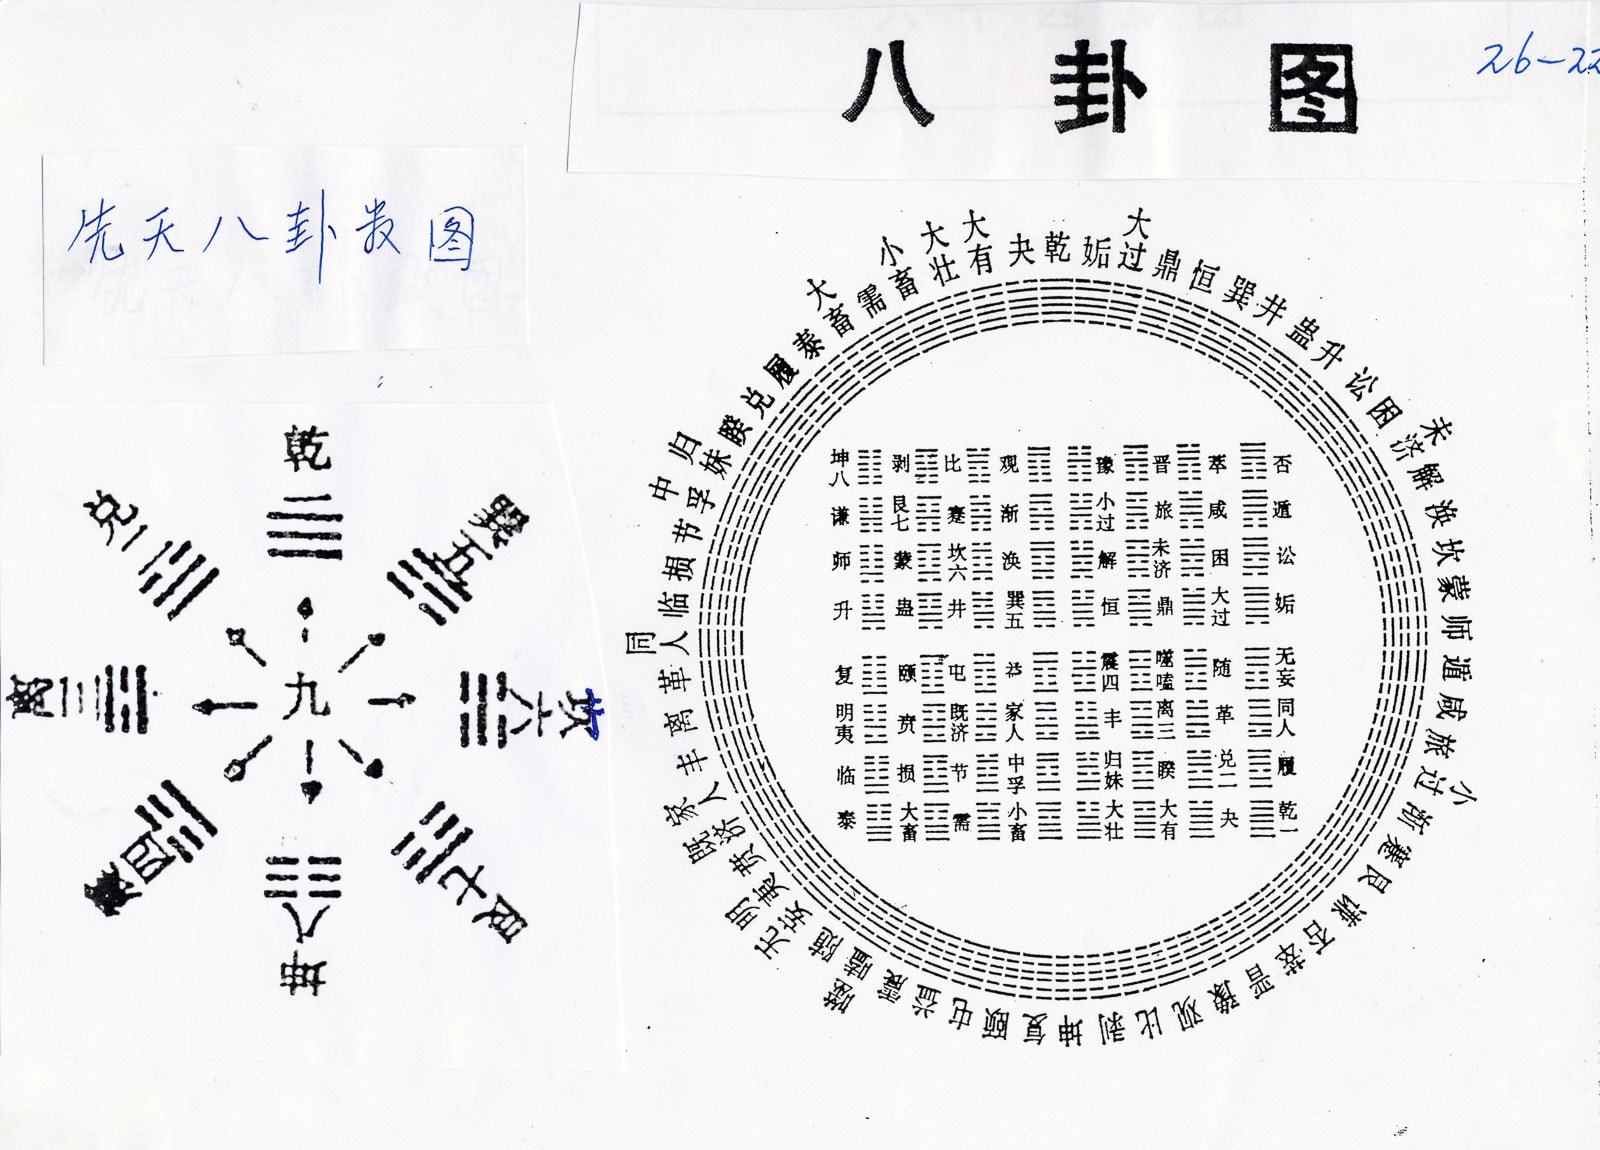 八卦图
26-22
先天八卦数图
乾
兑二
巽五
离三
九
坎六
震四
艮七
坤八
乾 姤 大过 鼎 恒 巽 井 蛊 升 讼 困 未济 解 涣 坎 蒙 师 遁 咸 旅 小过 渐 蹇 艮 谦 否 萃 晋 豫 观 比 剥 坤 复 颐 屯 益 震 噬嗑 随 无妄 明夷 贲 既济 家人 丰 离 革 同人 临 损 节 中孚 归妹 睽 兑 履 泰 大畜 需 小畜 大壮 大有 夬
坤八 剥 比 观 豫 晋 萃 否
谦 艮七 蹇 渐 小过 旅 咸 遁
师 蒙 坎六 涣 解 未济 困 讼
升 蛊 井 巽五 恒 鼎 大过 姤
复 颐 屯 益 震四 噬嗑 随 无妄
明夷 贲 既济 家人 丰 离三 革 同人
临 损 节 中孚 归妹 睽 兑二 履
泰 大畜 需 小畜 大壮 大有 夬 乾一